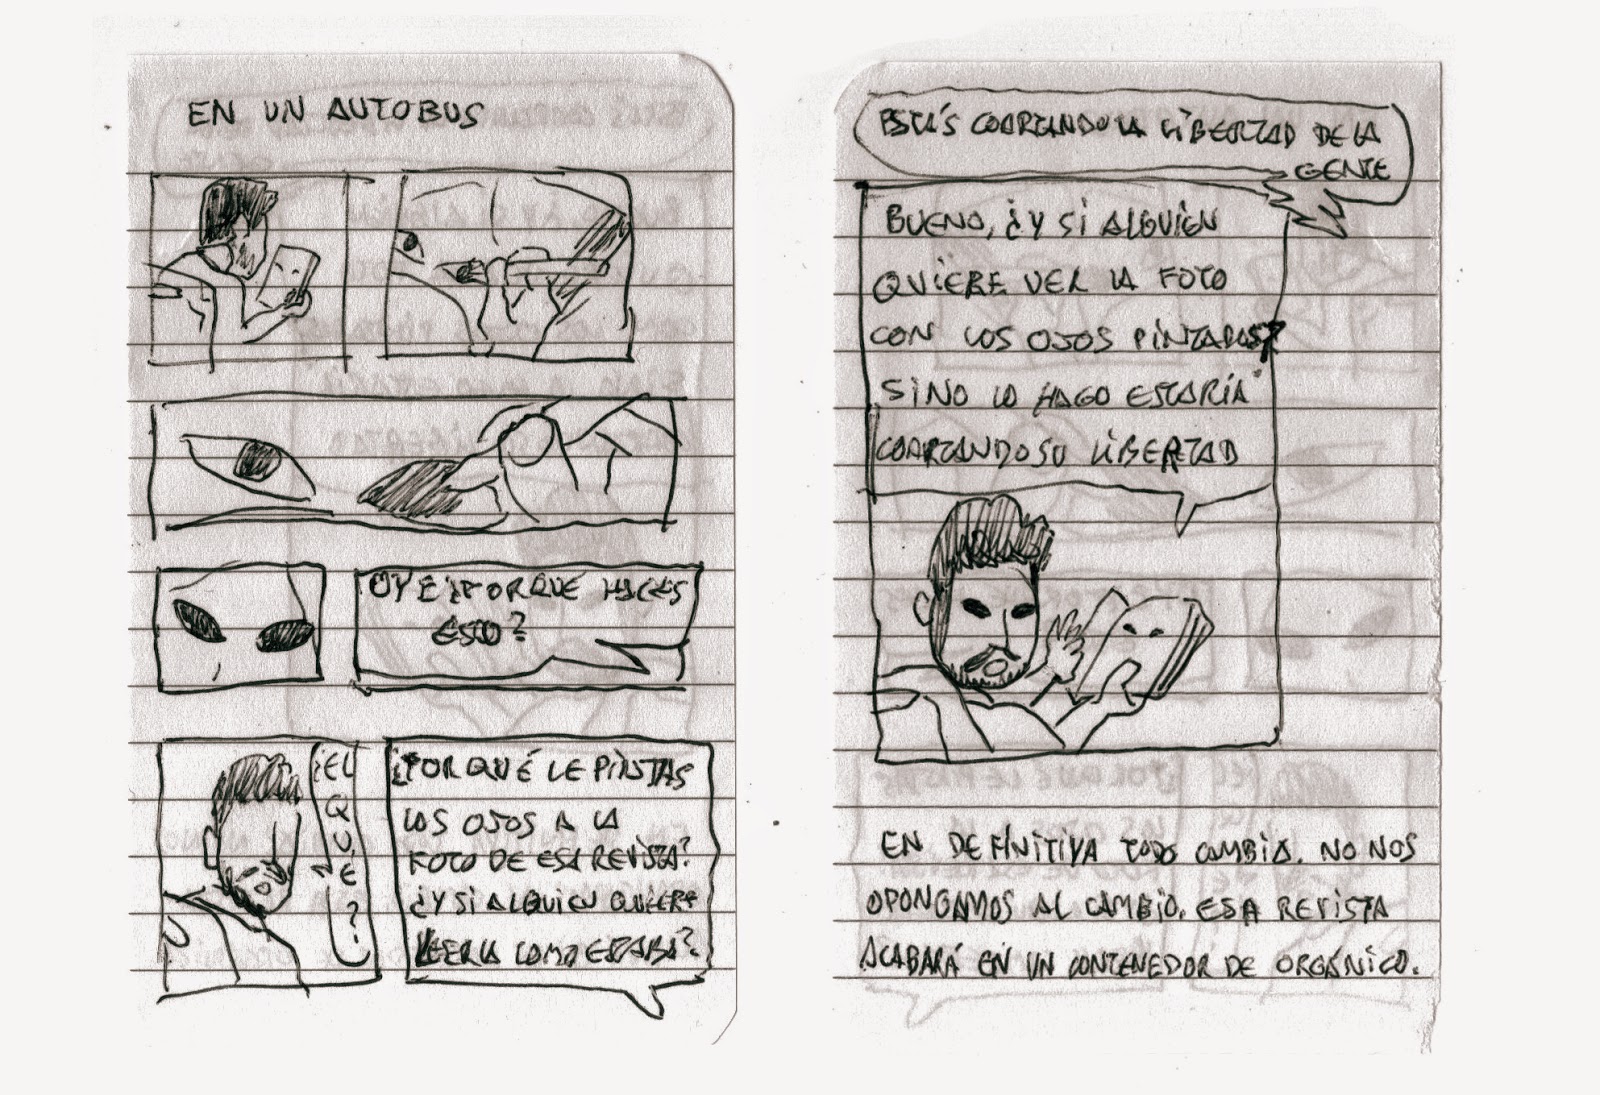 EN UN AUTOBUS
OYE ¿PORQUÉ HACES
ESTO?
¿EL
QUE?
¿PORQUÉ LE PINTAS
LOS OJOS A LA
FOTO DE ESA REVISTA?
¿Y SI ALGUIEN QUIERE
LEERLA COMO ESTABA?
ESTÁS COARTANDO LA LIBERTAD DE LA
GENTE
BUENO, ¿Y SI ALGUIEN
QUIERE VER LA FOTO
CON LOS OJOS PINTADOS?
SINO LO HAGO ESTARÍA
COARTANDO SU LIBERTAD
EN DEFINITIVA TODO CAMBIA. NO NOS
OPONGAMOS AL CAMBIO. ESA REVISTA
ACABARÁ EN UN CONTENEDOR DE ORGÁNICO.